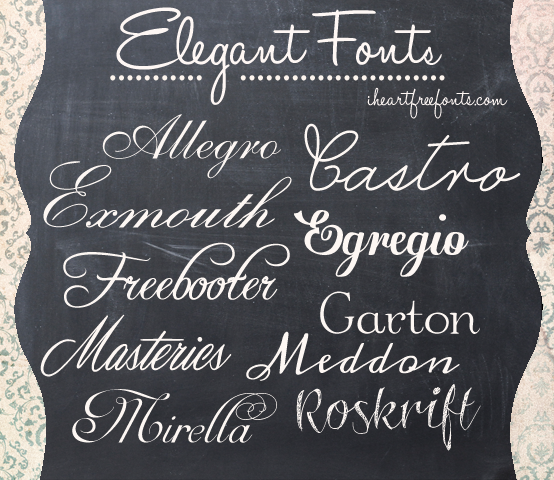 Elegant Fonts
iheartfreefonts.com
Allegro
Castro
Exmouth
Egregio
Freebooter
Garton
Masterics
Meddon
Mirella
Roskrift